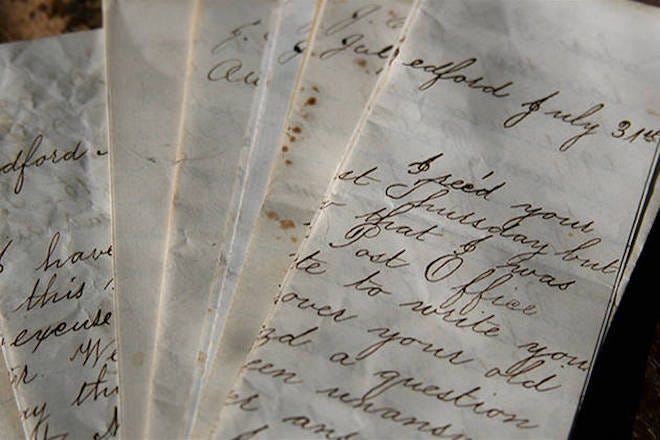 dford
I have
this
excuse
r. We
y th
J.
Au
J.
Jul
edford July 31st
I rec'd your
st Thursday but
r that I was
Post Office
te to write you
over your old
nd a question
een unansw
er an